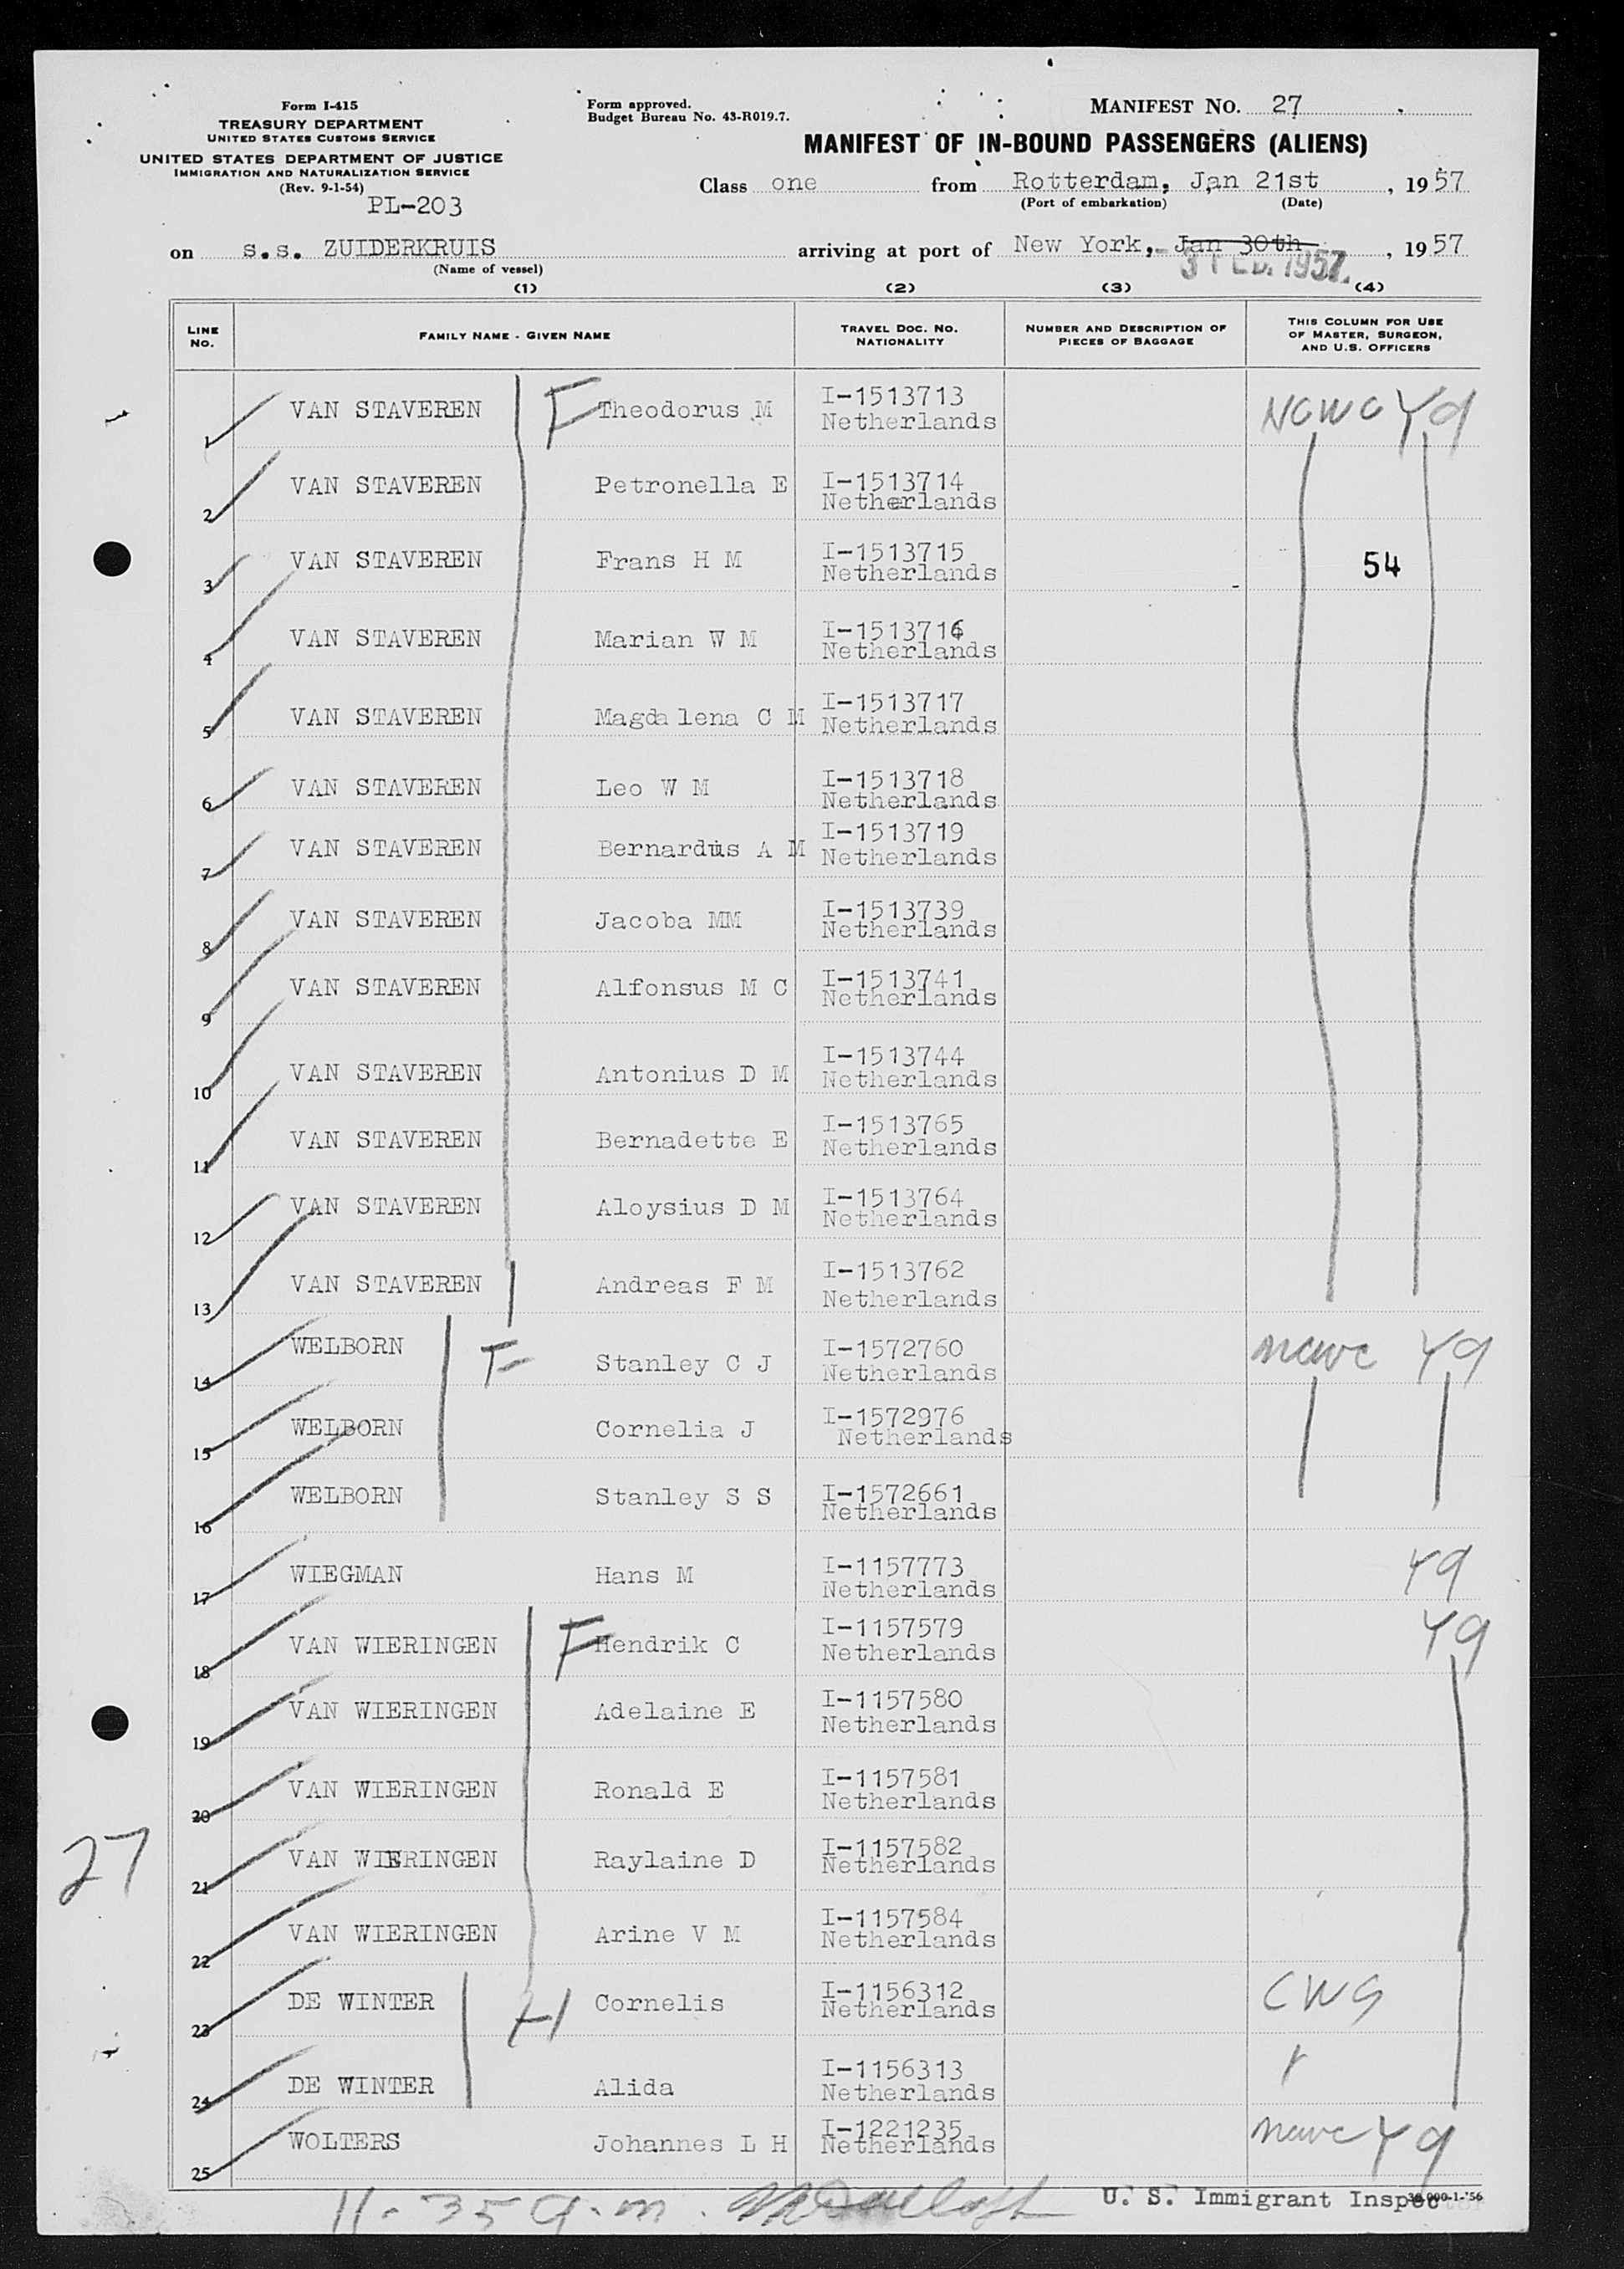 Form I-415
TREASURY DEPARTMENT
UNITED STATES CUSTOMS SERVICE
UNITED STATES DEPARTMENT OF JUSTICE
IMMIGRATION AND NATURALIZATION SERVICE
(Rev. 9-1-54)
PL-203
Form approved.
Budget Bureau No. 43-R019.7.
MANIFEST NO. 27
MANIFEST OF IN-BOUND PASSENGERS (ALIENS)
Class one from Rotterdam, Jan 21st, 1957
(Port of embarkation) (Date)
on s.s. ZUIDERKRUIS arriving at port of New York, Jan 30th, 1957
(Name of vessel) 3 FEB. 1957.
(1) (2) (3) (4)
LINE NO. FAMILY NAME - GIVEN NAME TRAVEL DOC. NO. NATIONALITY NUMBER AND DESCRIPTION OF PIECES OF BAGGAGE THIS COLUMN FOR USE OF MASTER, SURGEON, AND U.S. OFFICERS
1 VAN STAVEREN F Theodorus M I-1513713 Netherlands
2 VAN STAVEREN Petronella E I-1513714 Netherlands
3 VAN STAVEREN Frans H M I-1513715 Netherlands 54
4 VAN STAVEREN Marian W M I-1513716 Netherlands
5 VAN STAVEREN Magdalena C M I-1513717 Netherlands
6 VAN STAVEREN Leo W M I-1513718 Netherlands
7 VAN STAVEREN Bernardus A M I-1513719 Netherlands
8 VAN STAVEREN Jacoba MM I-1513739 Netherlands
9 VAN STAVEREN Alfonsus M C I-1513741 Netherlands
10 VAN STAVEREN Antonius D M I-1513744 Netherlands
11 VAN STAVEREN Bernadette E I-1513765 Netherlands
12 VAN STAVEREN Aloysius D M I-1513764 Netherlands
13 VAN STAVEREN Andreas F M I-1513762 Netherlands
14 WELBORN F Stanley C J I-1572760 Netherlands
15 WELBORN Cornelia J I-1572976 Netherlands
16 WELBORN Stanley S S I-1572661 Netherlands
17 WIEGMAN Hans M I-1157773 Netherlands
18 VAN WIERINGEN F Hendrik C I-1157579 Netherlands
19 VAN WIERINGEN Adelaine E I-1157580 Netherlands
20 VAN WIERINGEN Ronald E I-1157581 Netherlands
21 VAN WIERINGEN Raylaine D I-1157582 Netherlands
27
22 VAN WIERINGEN Arine V M I-1157584 Netherlands
23 DE WINTER H Cornelis I-1156312 Netherlands
24 DE WINTER Alida I-1156313 Netherlands
25 WOLTERS Johannes L H I-1221235 Netherlands
11-35 a.m. U. S. Immigrant Inspector